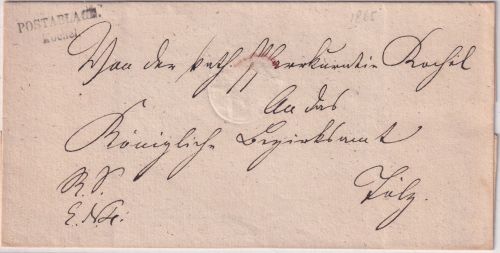 POSTABLAGE.
Kochel
1865
Von der kath. Pfarrkuratie Kochel
An das
Königliche Bezirksamt
R. S.
Tölz.